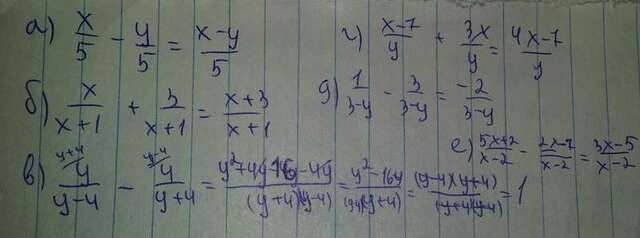 а) x/5 - y/5 = x-y/5
б) x/x+1 + 3/x+1 = x+3/x+1
в) y+4/ y/y-4 - y-4/ y/y+4 = y²+4y-16y-4y/(y+4)(y-4) = y²-16y/(y-4)(y+4) = (y-4)(y+4)/(y+4)(y-4) = 1
г) x-7/y + 3x/y = 4x-7/y
д) 1/3-y - 3/3-y = -2/3-y
е) 5x+2/x-2 - 2x-7/x-2 = 3x-5/x-2